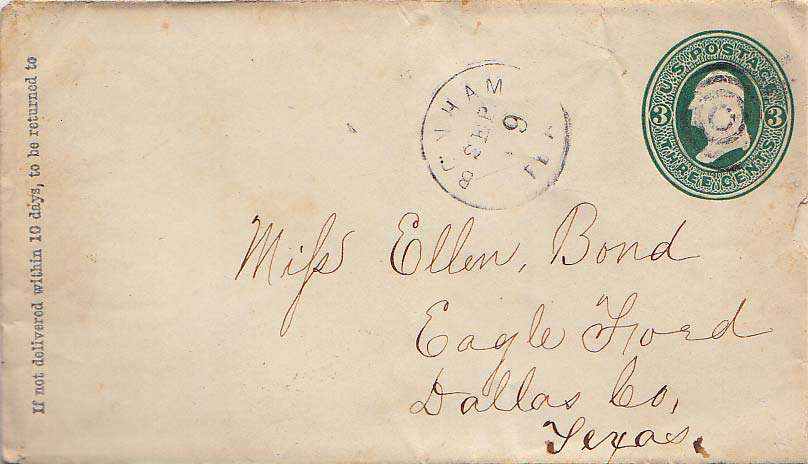 If not delivered within 10 days, to be returned to
BONHAM
SEP
9
U.S. POSTAGE
3 3
THREE CENTS
Miss Ellen, Bond
Eagle Ford
Dallas Co,
Texas.